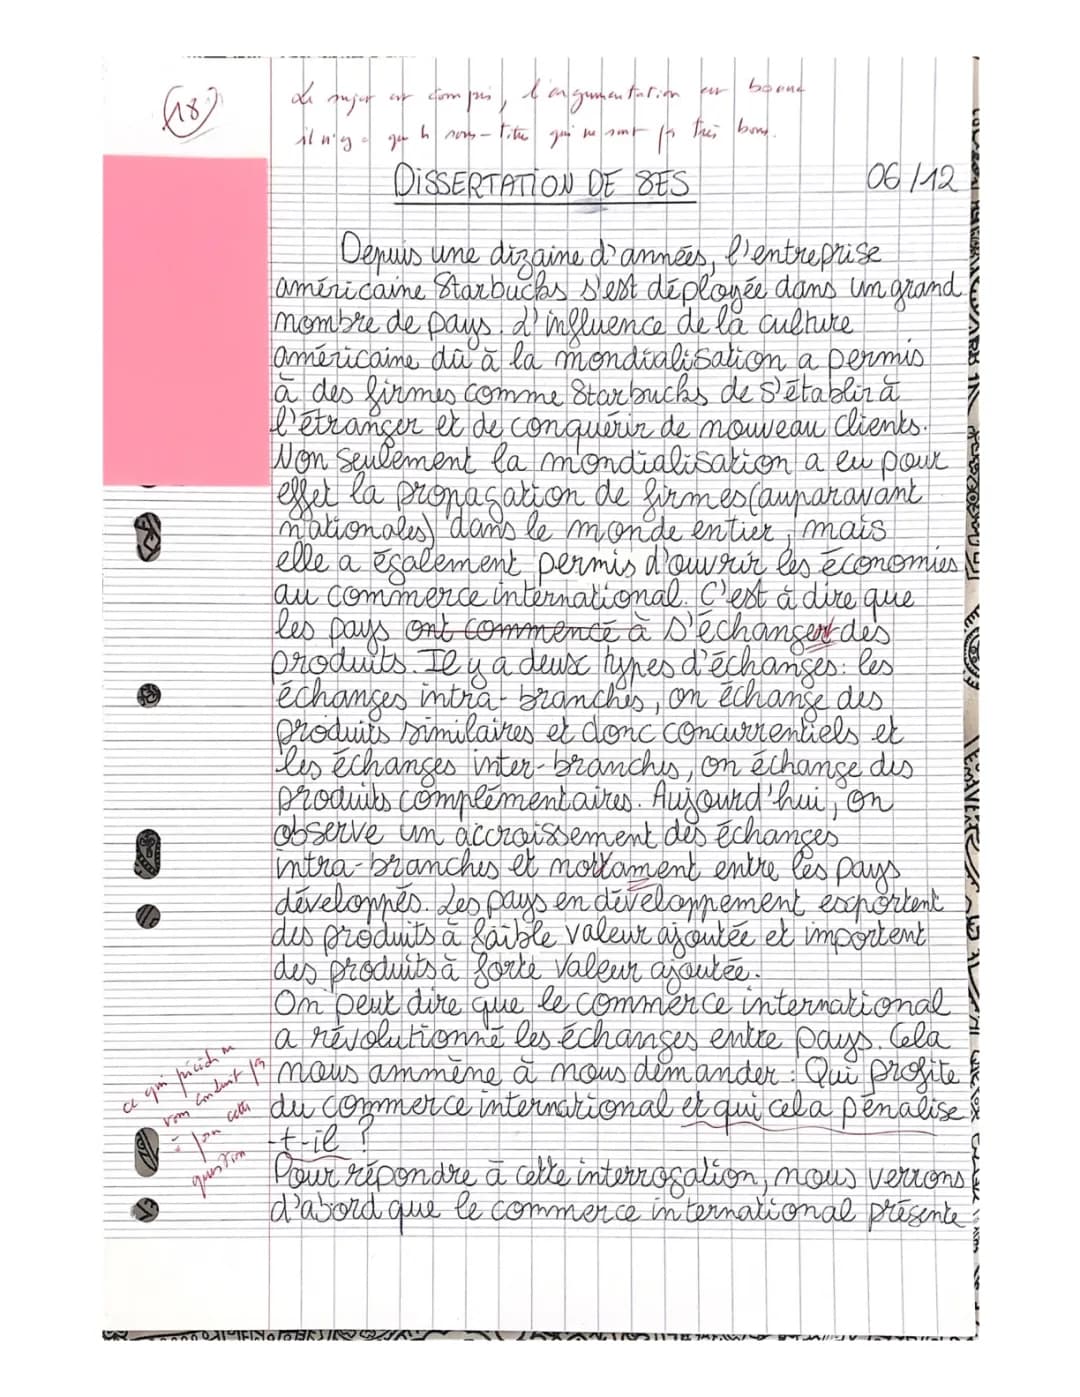 18
Le sujet est compris, l'argumentation est bonne
il n'y a que les sous-titres qui ne sont pas très bons.
DISSERTATION DE SES
06/12
Depuis une dizaine d'années, l'entreprise
américaine Starbucks s'est déployée dans un grand
nombre de pays. L'influence de la culture
américaine dû à la mondialisation a permis
à des firmes comme Starbucks de s'établir à
l'étranger et de conquérir de nouveau clients.
Non seulement la mondialisation a eu pour
effet la propagation de firmes (auparavant
nationales) dans le monde entier, mais
elle a également permis d'ouvrir les économies
au commerce international. C'est à dire que
les pays ont commencé à s'échanger des
produits. Il y a deux types d'échanges: les
échanges intra-branches, on échange des
produits similaires et donc concurrentiels et
les échanges inter-branches, on échange des
produits complémentaires. Aujourd'hui, on
observe un accroissement des échanges
intra-branches et nottament entre les pays
développés. Les pays en développement exportent
des produits à faible valeur ajoutée et importent
des produits à forte valeur ajoutée.
On peut dire que le commerce international
a révolutionné les échanges entre pays. Cela
nous ammène à nous demander : Qui profite
du commerce international et qui cela pénalise
-t-il ?
Pour répondre à cette interrogation, nous verrons
d'abord que le commerce international présente
ce qui précède ne
vous conduit pas
à poser cette
question